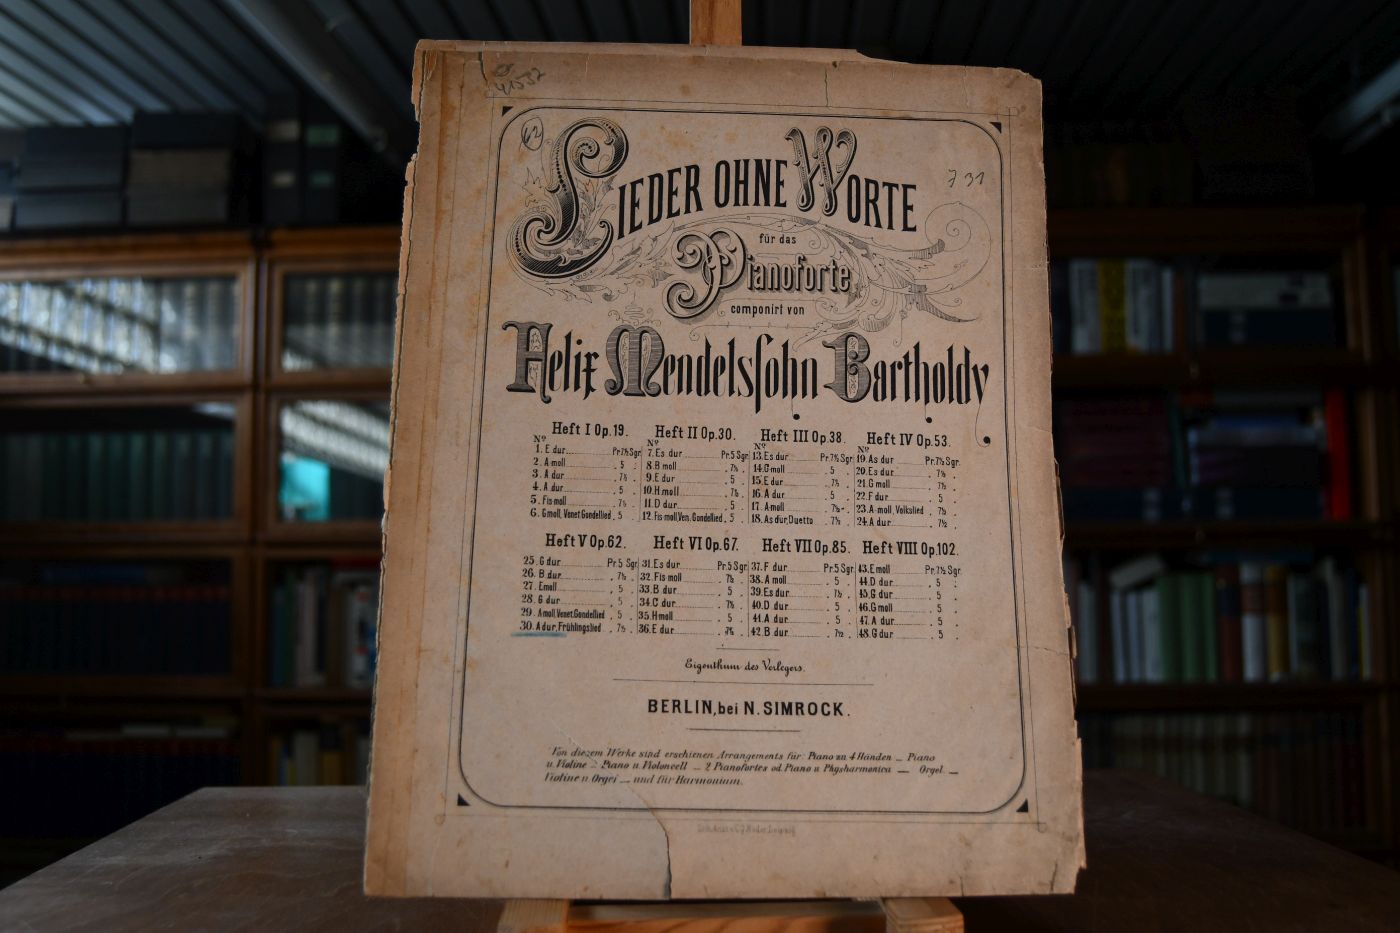 41532
42
731
LIEDER OHNE WORTE
für das
Pianoforte
componirt von
Felix Mendelsſohn Bartholdy
Heft I Op. 19.
No.
1. E dur Pr. 7½ Sgr.
2. A moll 5
3. A dur 7½
4. A dur 5
5. Fis moll 7½
6. G moll, Venet. Gondellied 5
Heft II Op. 30.
No.
7. Es dur Pr. 5 Sgr.
8. B moll 7½
9. E dur 5
10. H moll 7½
11. D dur 5
12. Fis moll, Ven. Gondellied 5
Heft III Op. 38.
No.
13. Es dur Pr. 7½ Sgr.
14. C moll 5
15. E dur 7½
16. A dur 5
17. A moll 7½
18. As dur, Duetto 7½
Heft IV Op. 53.
No.
19. As dur Pr. 7½ Sgr.
20. Es dur 7½
21. G moll 7½
22. F dur 5
23. A moll, Volkslied 7½
24. A dur 7½
Heft V Op. 62.
25. G dur Pr. 5 Sgr.
26. B dur 7½
27. E moll 5
28. G dur 5
29. A moll, Venet. Gondellied 5
30. A dur, Frühlingslied 7½
Heft VI Op. 67.
31. Es dur Pr. 5 Sgr.
32. Fis moll 7½
33. B dur 5
34. C dur 7½
35. H moll 5
36. E dur 7½
Heft VII Op. 85.
37. F dur Pr. 5 Sgr.
38. A moll 5
39. Es dur 7½
40. D dur 5
41. A dur 5
42. B dur 7½
Heft VIII Op. 102.
43. E moll Pr. 7½ Sgr.
44. D dur 5
45. C dur 5
46. G moll 5
47. A dur 5
48. C dur 5
Eigenthum des Verlegers.
BERLIN, bei N. SIMROCK.
Von diesem Werke sind erschienen Arrangements für Piano zu 4 Händen — Piano
u. Violine — Piano u. Violoncell — 2 Pianofortes od. Piano u. Physharmonica — Orgel —
Violine u. Orgel — und für Harmonium.